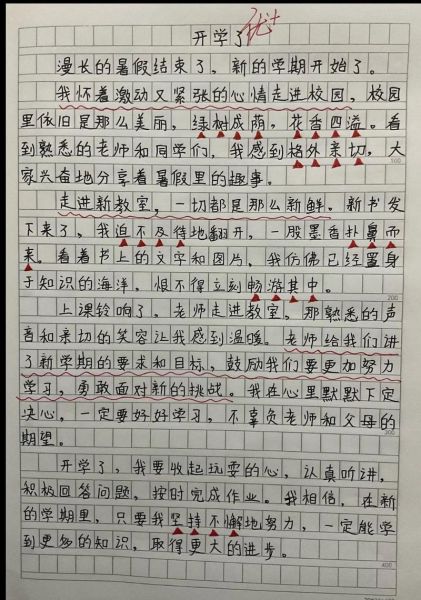 开学了 优+
漫长的暑假结束了，新的学期开始了。
我怀着激动又紧张的心情走进校园，校园
里依旧是那么美丽，绿树成荫，花香四溢。看
到熟悉的老师和同学们，我感到格外亲切，大
家兴奋地分享着暑假里的趣事。
100
走进新教室，一切都是那么新鲜。新书发
下来了，我迫不及待地翻开，一股墨香扑鼻而
来。看着书上的文字和图片，我仿佛已经置身
于知识的海洋，恨不得立刻畅游其中。
200
上课铃响了，老师走进教室，那熟悉的声
音和亲切的笑容让我感到温暖。老师给我们讲
了新学期的要求和目标，鼓励我们要更加努力
学习，勇敢面对新的挑战。我在心里默默下定
决心，一定要好好学习，不辜负老师和父母的
300
期望。
开学了，我要收起玩耍的心，认真听讲，
积极回答问题，按时完成作业。我相信，在新
的学期里，只要我坚持不懈地努力，一定能学
到更多的知识，取得更大的进步。
400